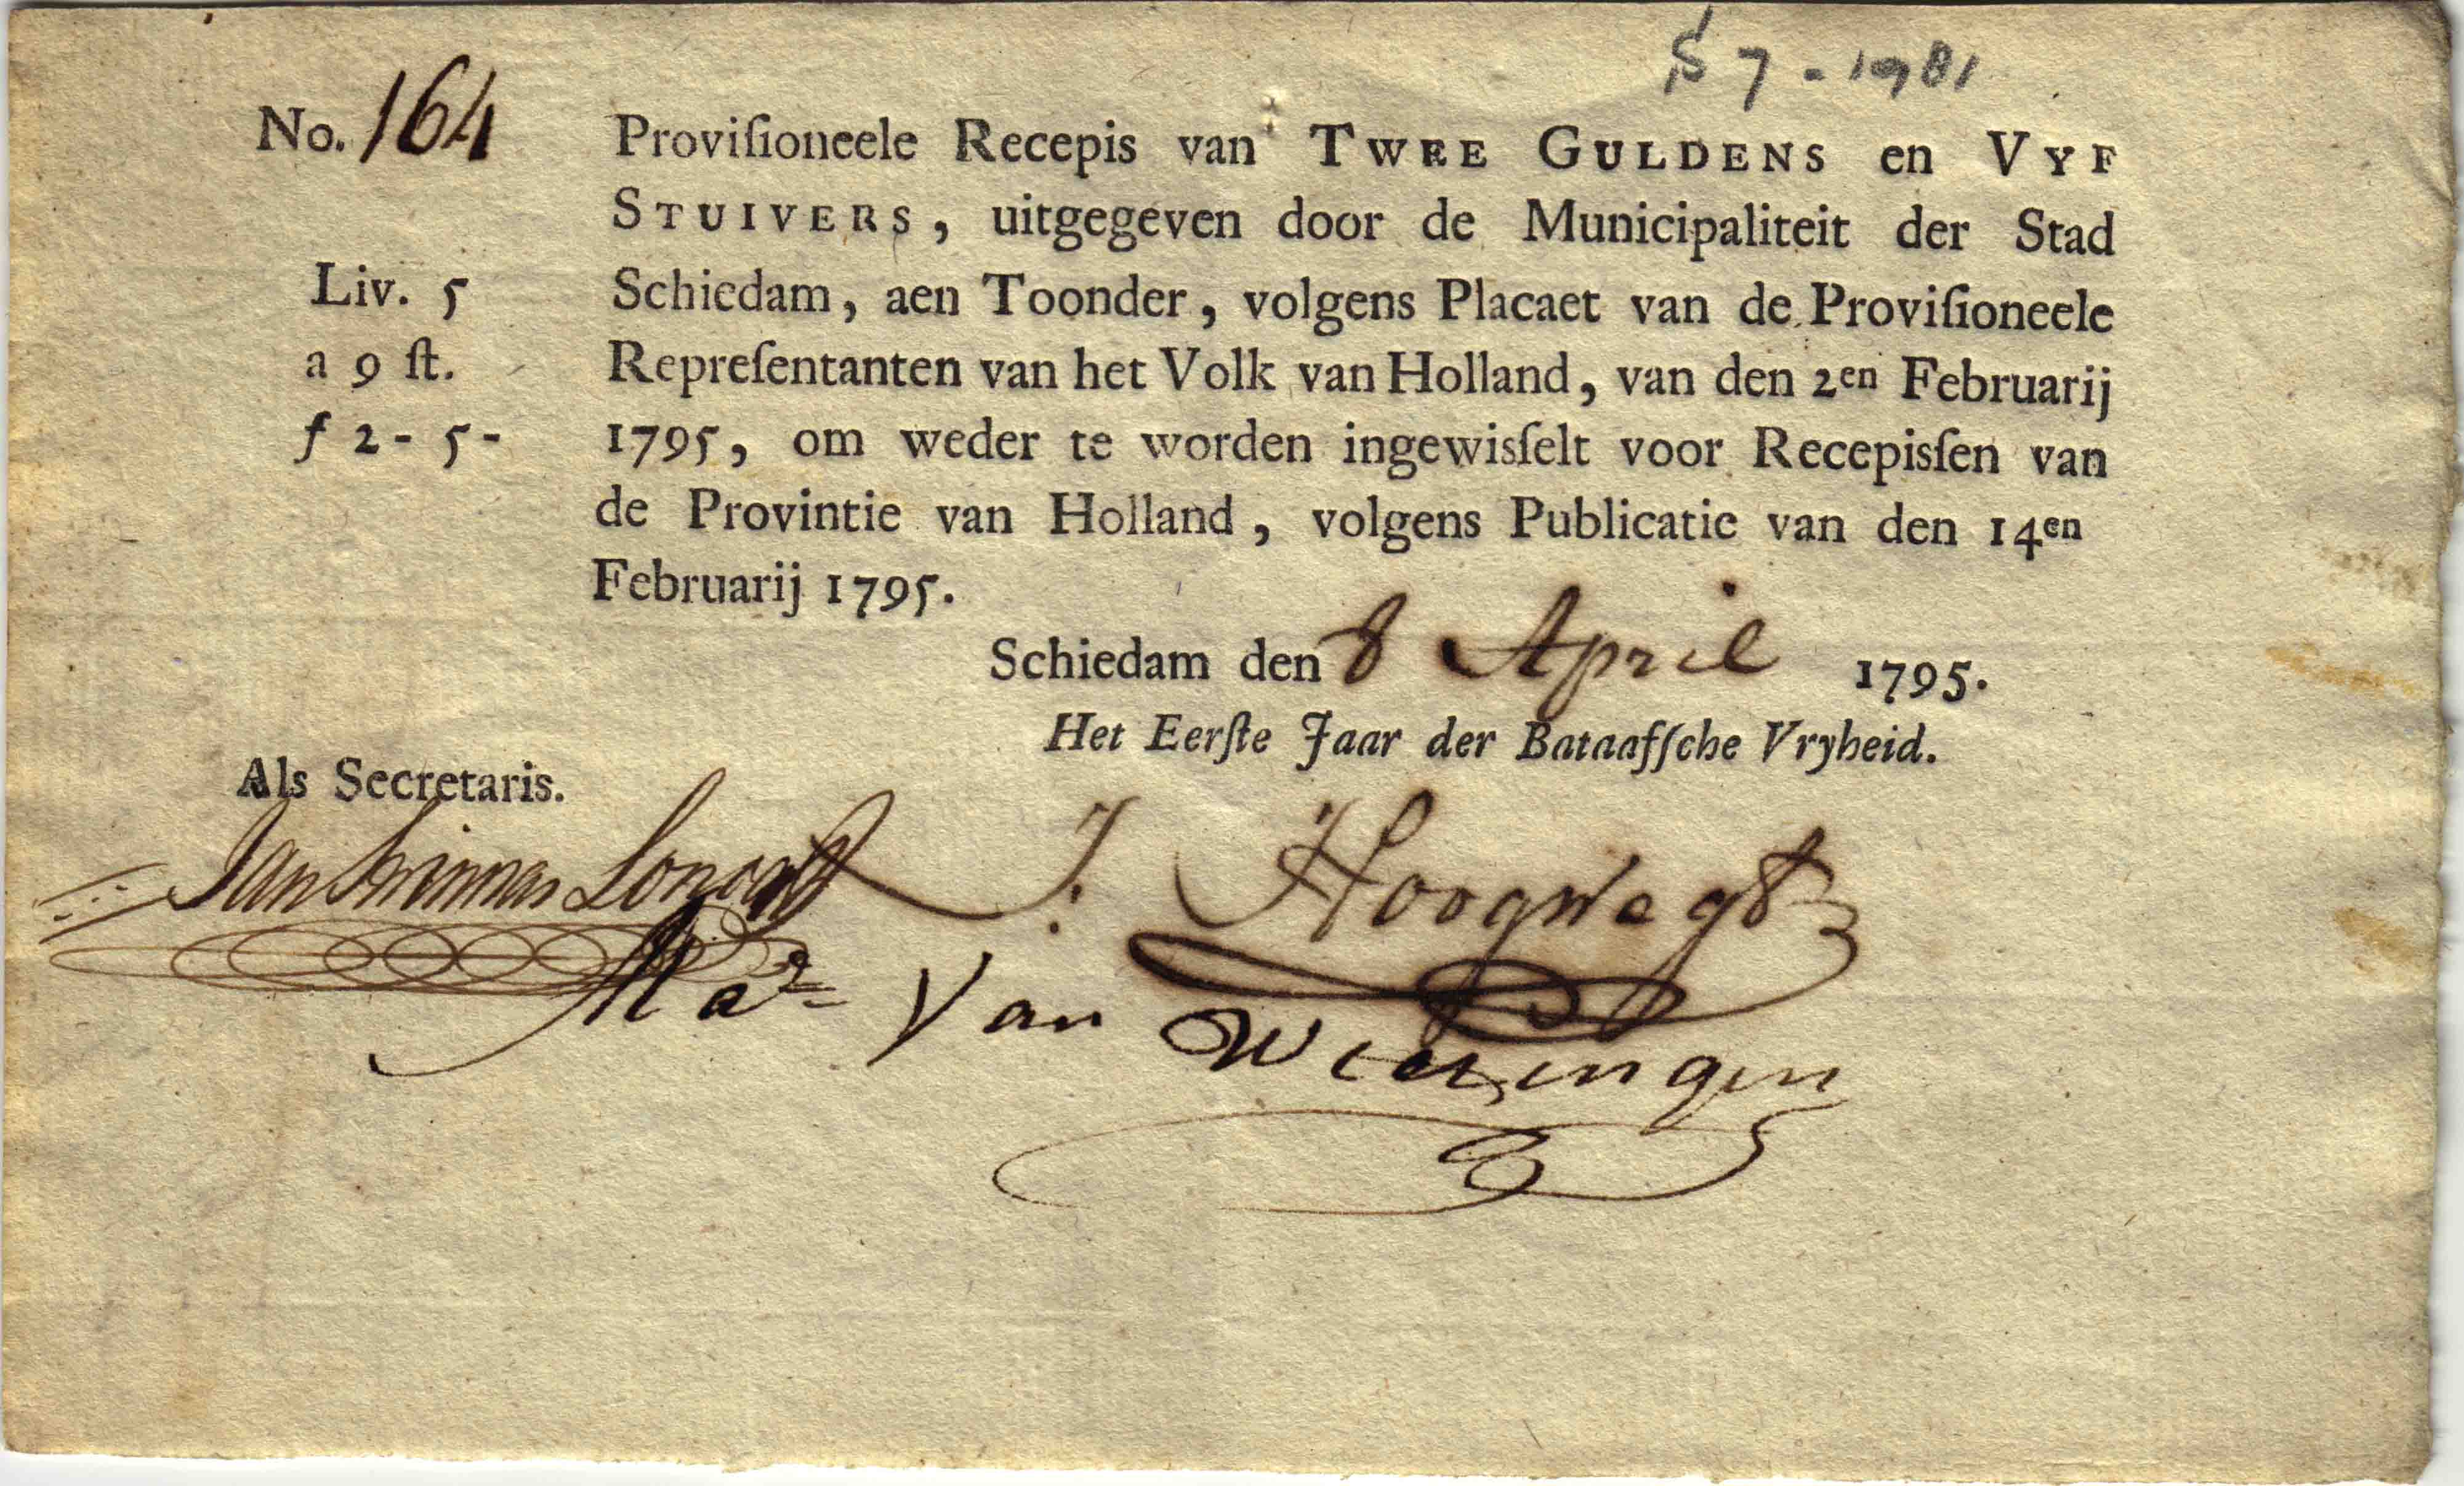 $ 7 - 1981
No. 164
Proviſioneele Recepis van TWEE GULDENS en VYF
STUIVERS, uitgegeven door de Municipaliteit der Stad
Liv. 5
Schiedam, aen Toonder, volgens Placaet van de Proviſioneele
a 9 ſt.
Repreſentanten van het Volk van Holland, van den 2en Februarij
f 2 - 5 -
1795, om weder te worden ingewisſelt voor Recepisſen van
de Provintie van Holland, volgens Publicatie van den 14en
Februarij 1795.
Schiedam den 8 April 1795.
Het Eerſte Jaar der Bataafſche Vryheid.
Als Secretaris.
Jan
J. Hoogwegt
Van